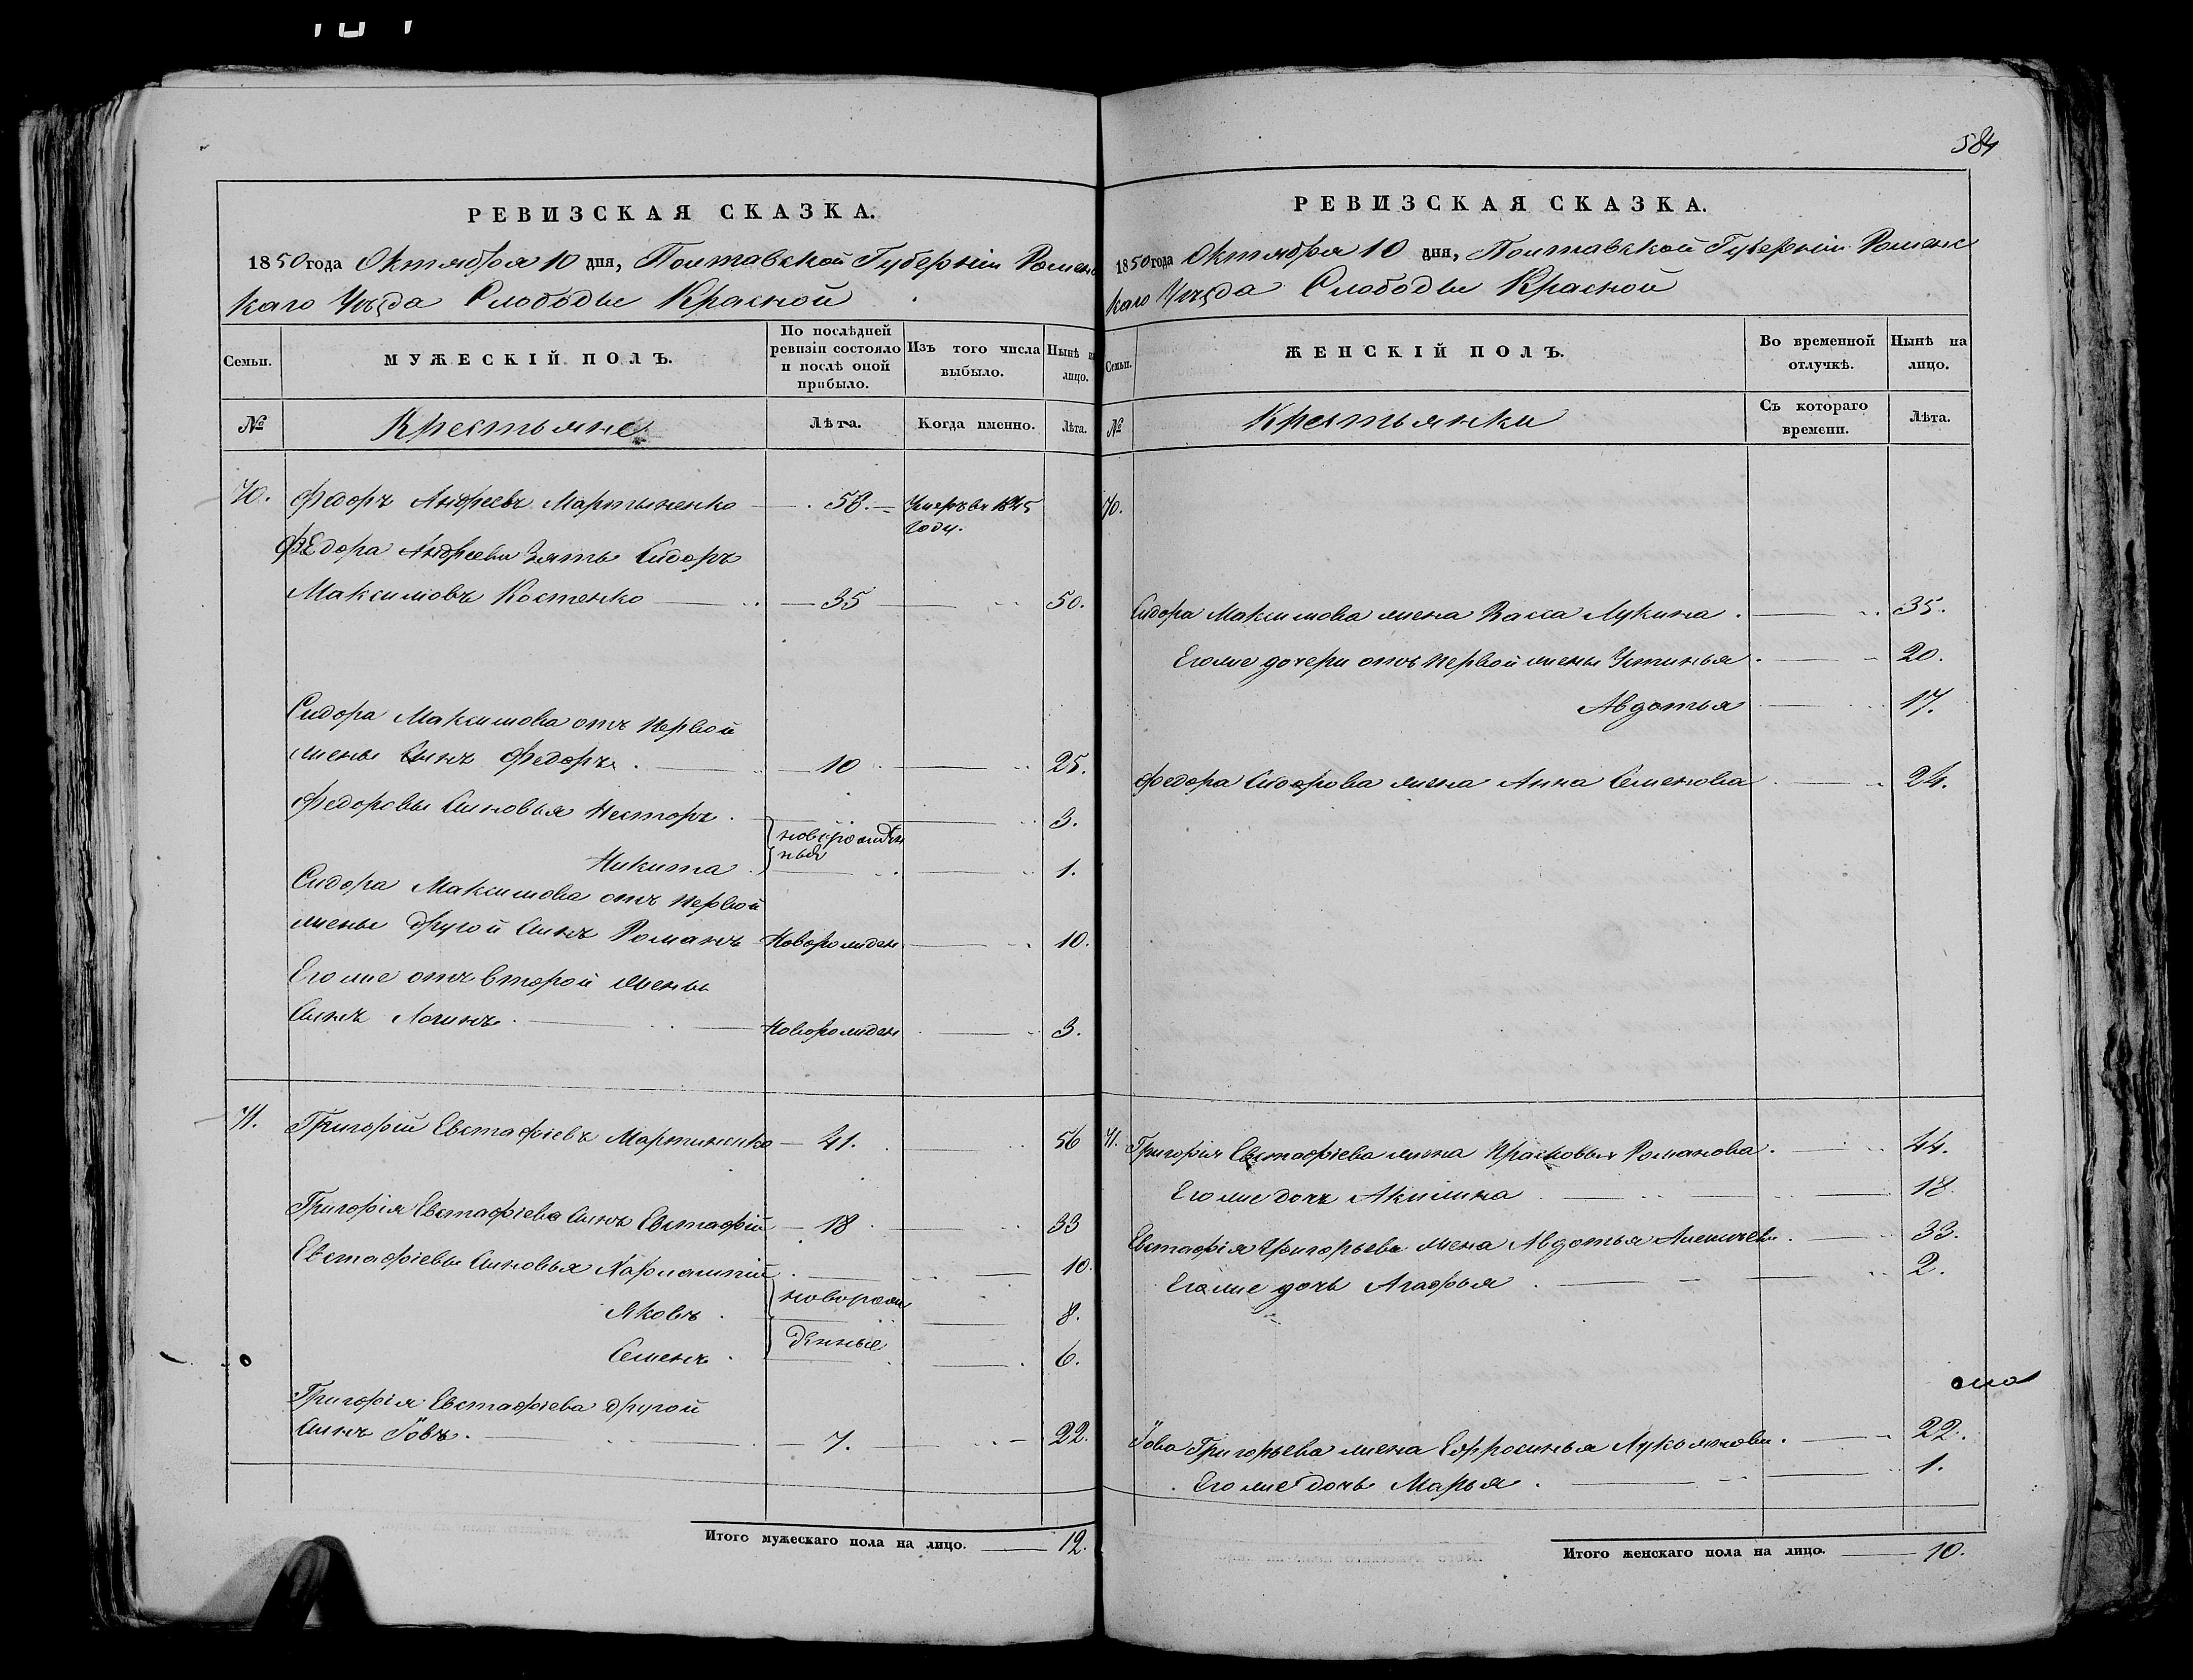 584
РЕВИЗСКАЯ СКАЗКА.
1850 года Октября 10 дня, Полтавской Губерніи Ромен
каго Уѣзда Слободы Красной
Семьи.
МУЖЕСКІЙ ПОЛЪ.
По послѣдней ревизіи состояло и послѣ оной прибыло.
Изъ того числа выбыло.
Нынѣ на лицо.
№
Крестьяне
Лѣта.
Когда именно.
Лѣта.
70. Федоръ Андреевъ Мартыненко 58. Умеръ въ 1845
году.
Федора Андреева Зять Сидоръ
Максимовъ Костенко 35 50.
Сидора Максимова отъ первой
жены Сынъ Федоръ. 10 25.
Федоровы Сыновья Несторъ. 3.
новорожден
ныя
Никита. 1.
Сидора Максимова отъ первой
жены другой Сынъ Романъ Новорожден 10.
Его же отъ второй жены
Сынъ Логинъ. Новорожден 3.
71. Григорій Евстафіевъ Мартиненко 41. 56
Григорія Евстафіева Сынъ Евстафій 18. 33
Евстафіевы Сыновья Харлампій 10.
новорож
Яковъ. 8.
денные
Семенъ. 6.
Григорія Евстафіева другой
Сынъ Іовъ. 7. 22.
Итого мужескаго пола на лицо. 12.
РЕВИЗСКАЯ СКАЗКА.
1850 года Октября 10 дня, Полтавской Губерніи Роменс
каго Уѣзда Слободы Красной
Семьи.
ЖЕНСКІЙ ПОЛЪ.
Во временной отлучкѣ.
Нынѣ на лицо.
№
Крестьянки
Съ котораго времени.
Лѣта.
70.
Сидора Максимова жена Васса Лукина. 35.
Его же дочери отъ первой жены Устинья. 20.
Авдотья 17.
Федора Сидорова жена Анна Семенова 24.
71. Григорія Евстафіева жена Прасковья Романова. 44.
Его же дочь Акилина 18.
Евстафія Григорьева жена Авдотья 33.
Его же дочь Агафья. 2.
Іова Григорьева жена Ефросинья Лукьянова. 22.
Его же дочь Марья. 1.
Итого женскаго пола на лицо. 10.